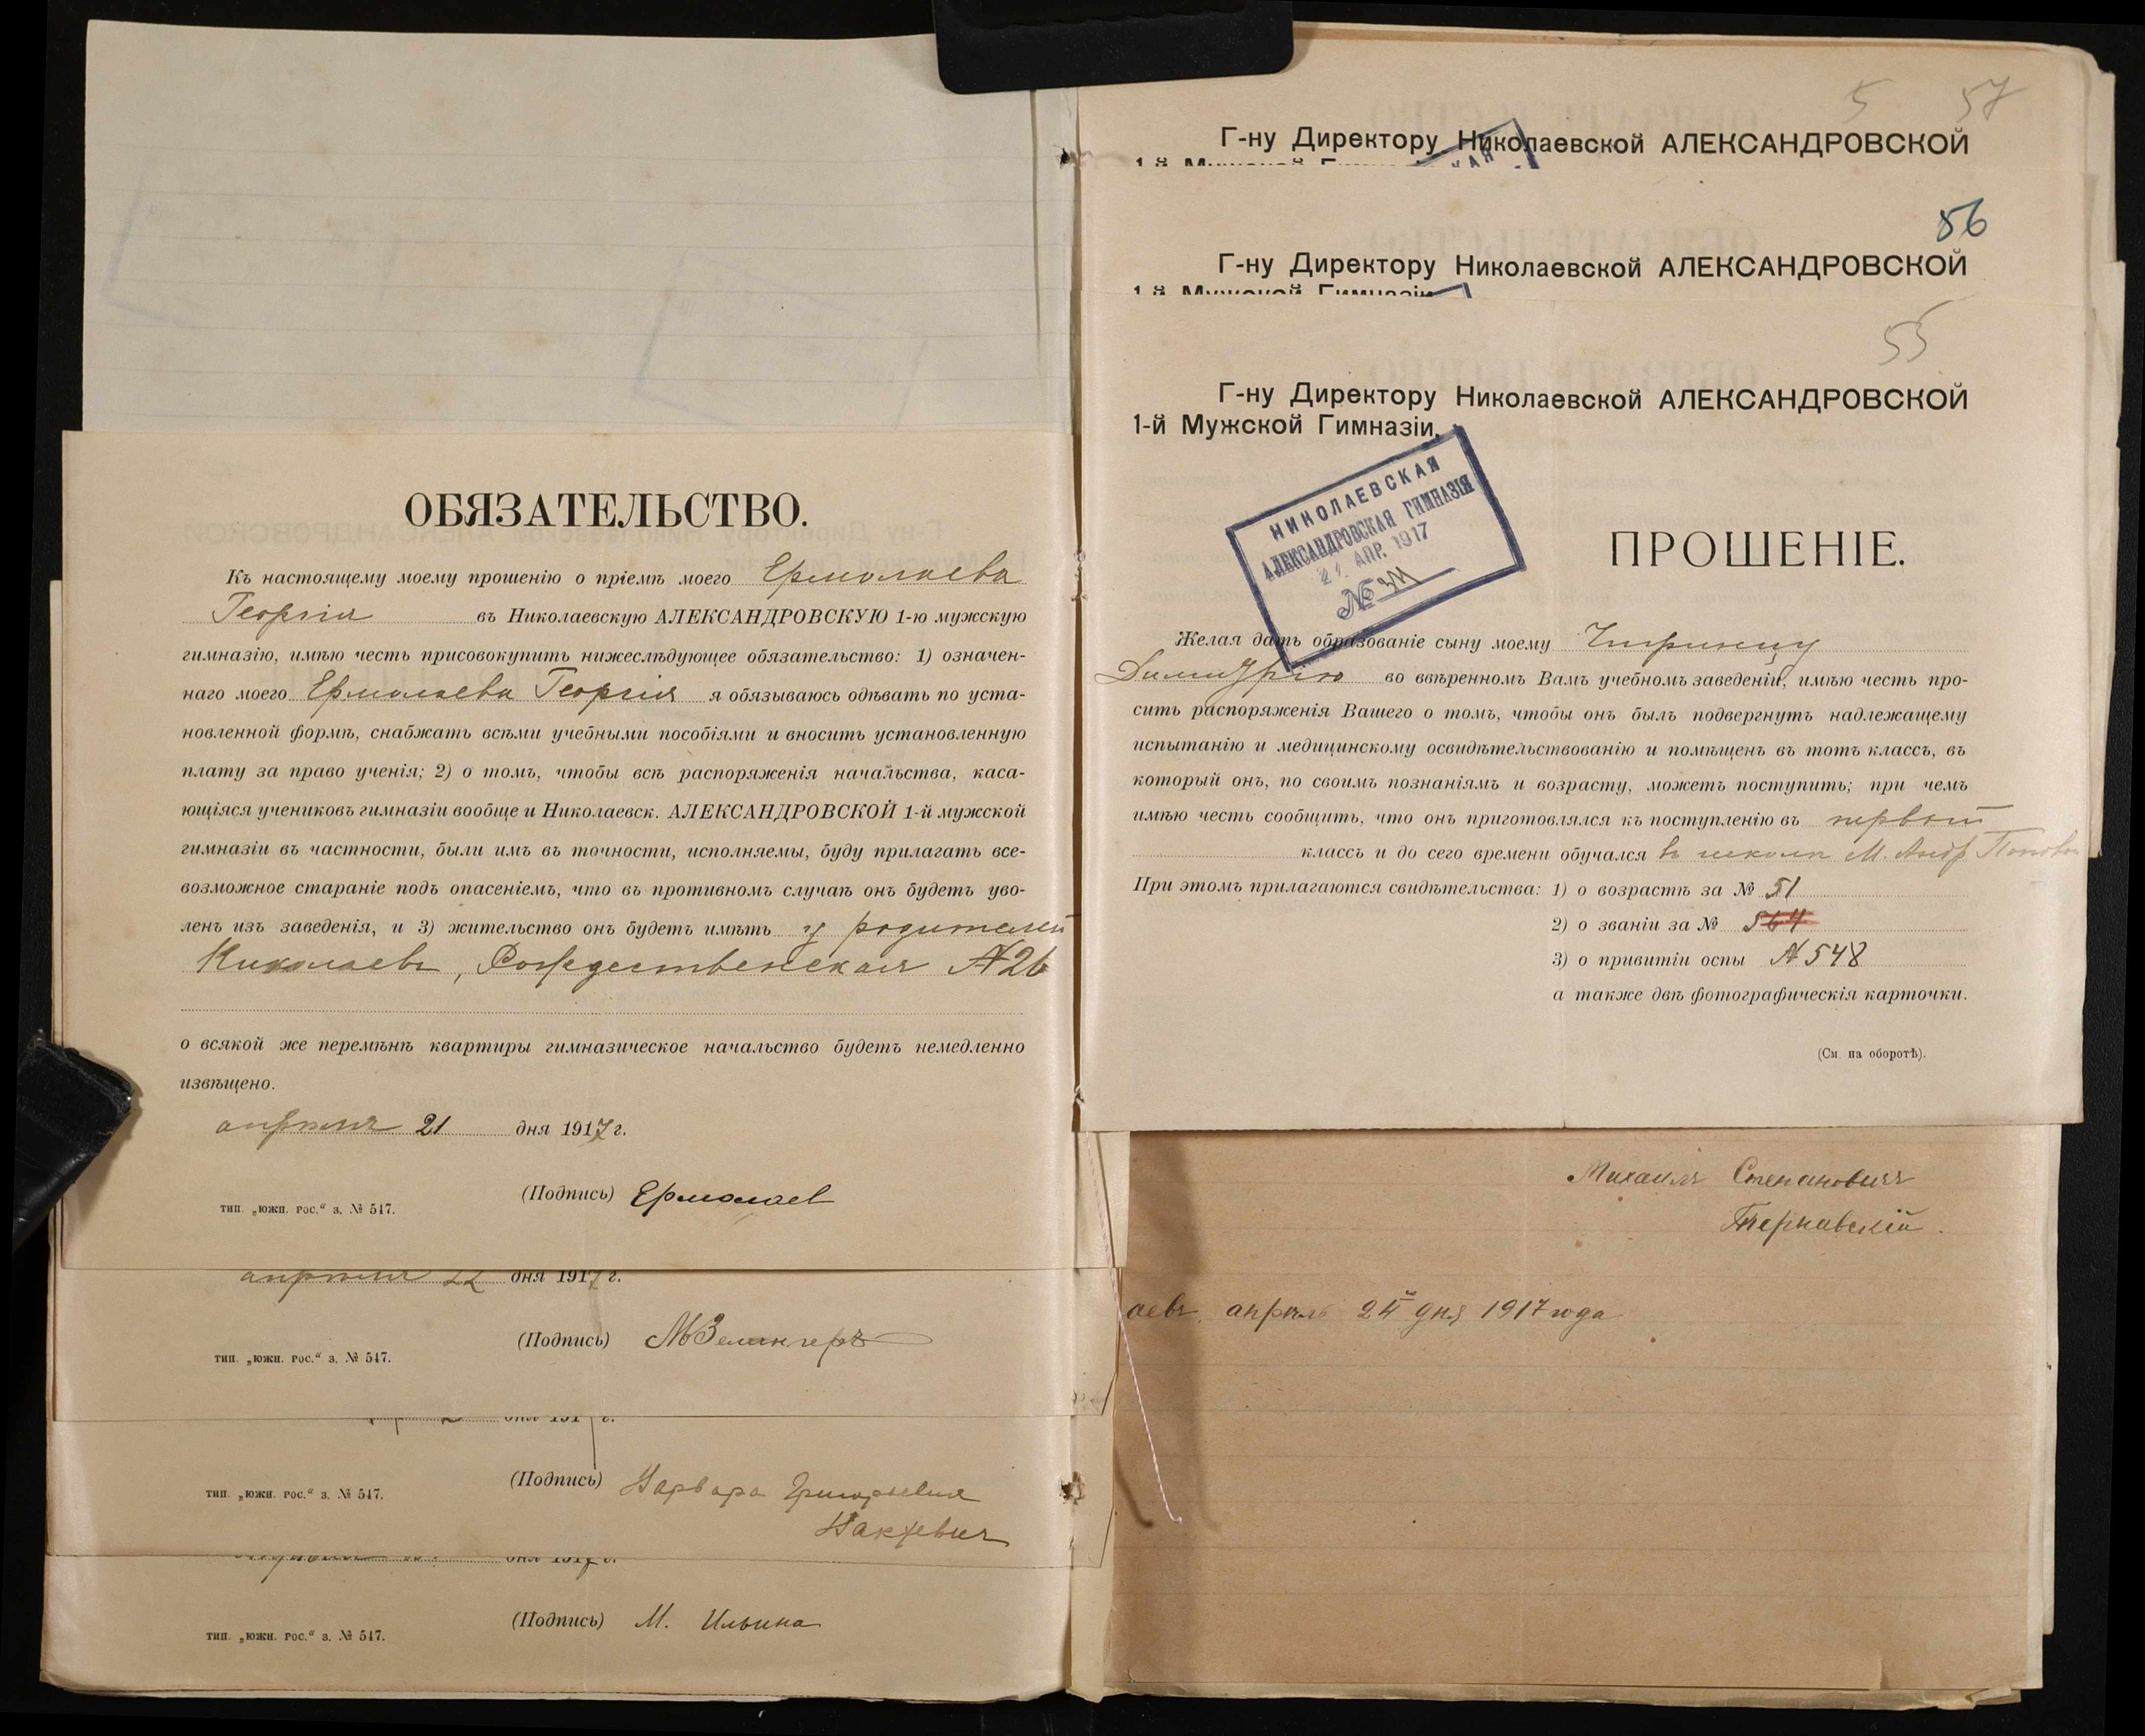 ОБЯЗАТЕЛЬСТВО.
Къ настоящему моему прошенію о пріемѣ моего Ермолаева
Георгія въ Николаевскую АЛЕКСАНДРОВСКУЮ 1-ю мужскую
гимназію, имѣю честь присовокупить нижеслѣдующее обязательство: 1) означен-
наго моего Ермолаева Георгія я обязываюсь одѣвать по уста-
новленной формѣ, снабжать всѣми учебными пособіями и вносить установленную
плату за право ученія; 2) о томъ, чтобы всѣ распоряженія начальства, каса-
ющіяся учениковъ гимназіи вообще и Николаевск. АЛЕКСАНДРОВСКОЙ 1-й мужской
гимназіи въ частности, были имъ въ точности, исполняемы, буду прилагать все-
возможное стараніе подъ опасеніемъ, что въ противномъ случаѣ онъ будетъ уво-
ленъ изъ заведенія, и 3) жительство онъ будетъ имѣть у родителей
Николаевъ, Рождественская № 26
о всякой же перемѣнѣ квартиры гимназическое начальство будетъ немедленно
извѣщено.
апрѣля 21 дня 1917 г.
(Подпись) Ермолаев
тип. „южн. рос.“ з. № 547.
апрѣля 22 дня 1917 г.
(Подпись)
тип. „южн. рос.“ з. № 547.
дня 1917 г.
(Подпись) Варвара Григорьевна
тип. „южн. рос.“ з. № 547.
дня 1917 г.
(Подпись) М. Ильина
тип. „южн. рос.“ з. № 547.
5 57
Г-ну Директору Николаевской АЛЕКСАНДРОВСКОЙ
1-й Мужской Гимназіи
56
Г-ну Директору Николаевской АЛЕКСАНДРОВСКОЙ
1-й Мужской Гимназіи
55
Г-ну Директору Николаевской АЛЕКСАНДРОВСКОЙ
1-й Мужской Гимназіи.
НИКОЛАЕВСКАЯ
АЛЕКСАНДРОВСКАЯ ГИМНАЗІЯ
21 АПР. 1917
№
ПРОШЕНІЕ.
Желая дать образованіе сыну моему
Димитрію во ввѣренномъ Вамъ учебномъ заведеніи, имѣю честь про-
сить распоряженія Вашего о томъ, чтобы онъ былъ подвергнутъ надлежащему
испытанію и медицинскому освидѣтельствованію и помѣщенъ въ тотъ классъ, въ
который онъ, по своимъ познаніямъ и возрасту, можетъ поступить; при чемъ
имѣю честь сообщить, что онъ приготовлялся къ поступленію въ первый
классъ и до сего времени обучался въ школѣ М. Андр.
При этомъ прилагаются свидѣтельства: 1) о возрастѣ за № 51
2) о званіи за № 564
3) о привитіи оспы № 548
а также двѣ фотографическія карточки.
(См. на оборотѣ).
Михаилъ Степановичъ
Тернавскій.
аевъ, апрѣль 24го дня 1917 года